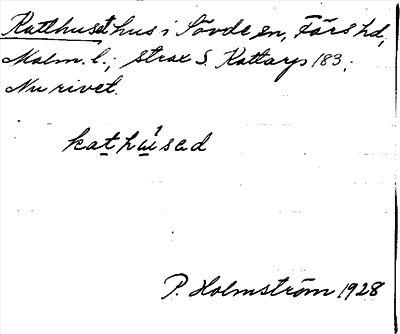 Katthuset hus i Sövde sn, Färs hd,
Malm. l.; strax S. Kattarp 183.
Nu rivet.
kathúsed
P. Holmström 1928